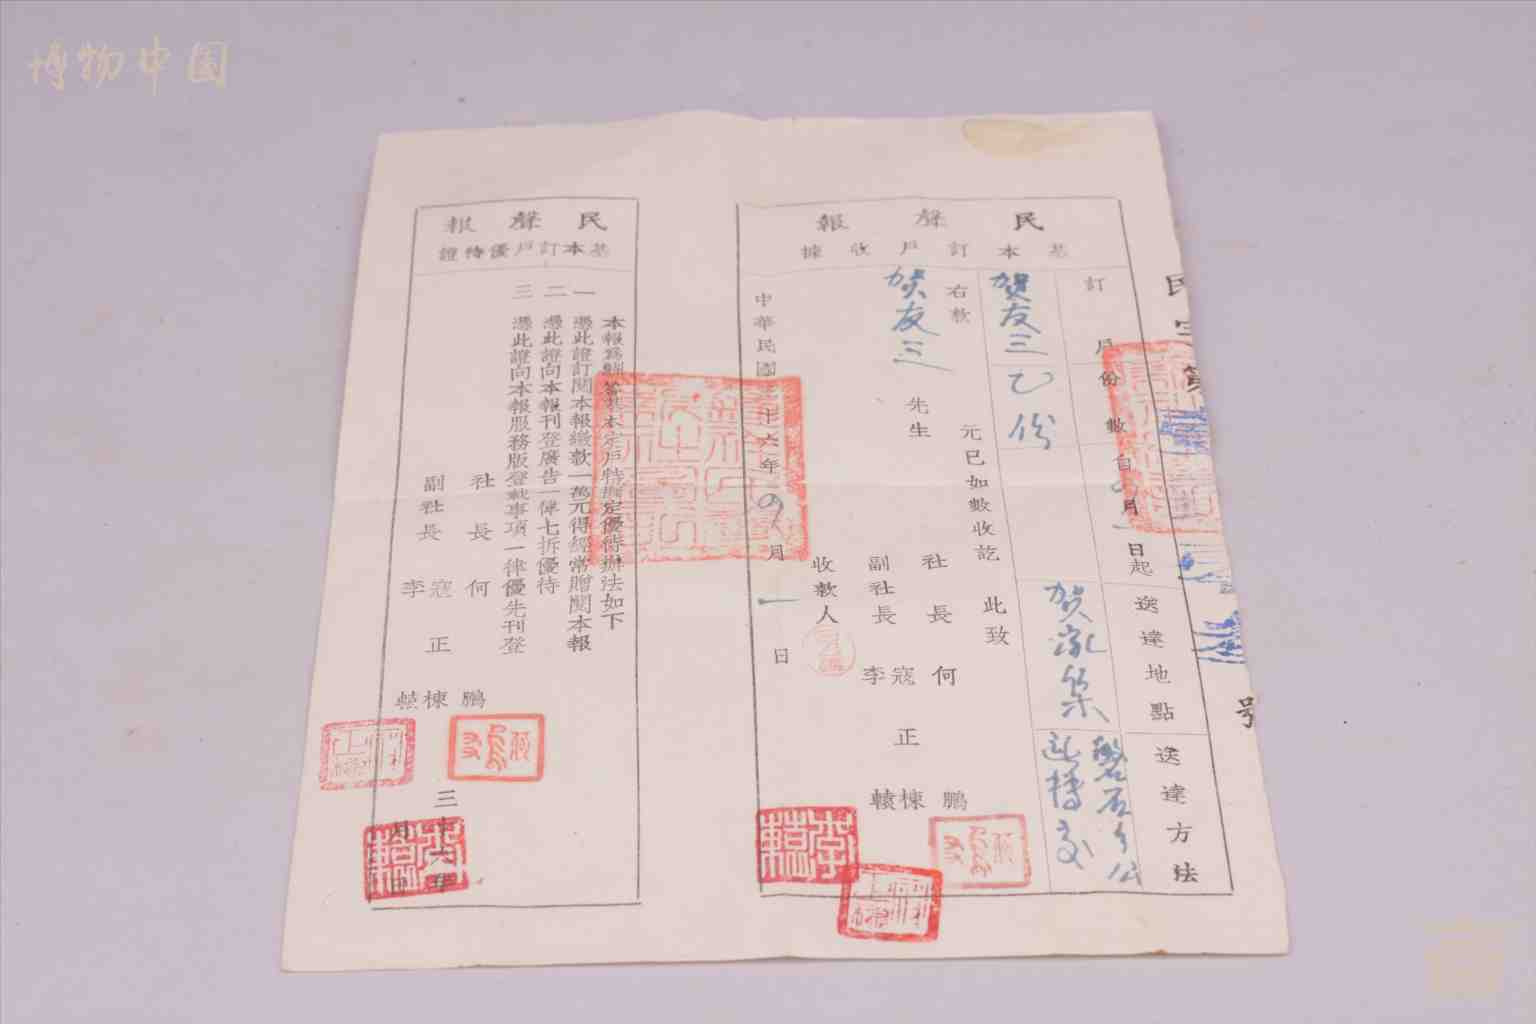 博物中国
民聲報
基本訂戶收據
訂戶份數
自四月一日起
送達地點
送達方法
賀友三
乙份
右款
元已如數收訖
此致
賀友三
先生
社長 何鵬
副社長 寇正棟 李轅
收款人
中華民國三十六年四月一日
號
民聲報
基本訂戶優待證
本報為酬答基本定戶特擬定優待辦法如下
一 憑此證訂閱本報繳款一萬元得經常贈閱本報
二 憑此證向本報刊登廣告一律七折優待
三 憑此證向本報服務版登載事項一律優先刊登
社長 何鵬
副社長 寇正棟 李轅
三十六年 月 日